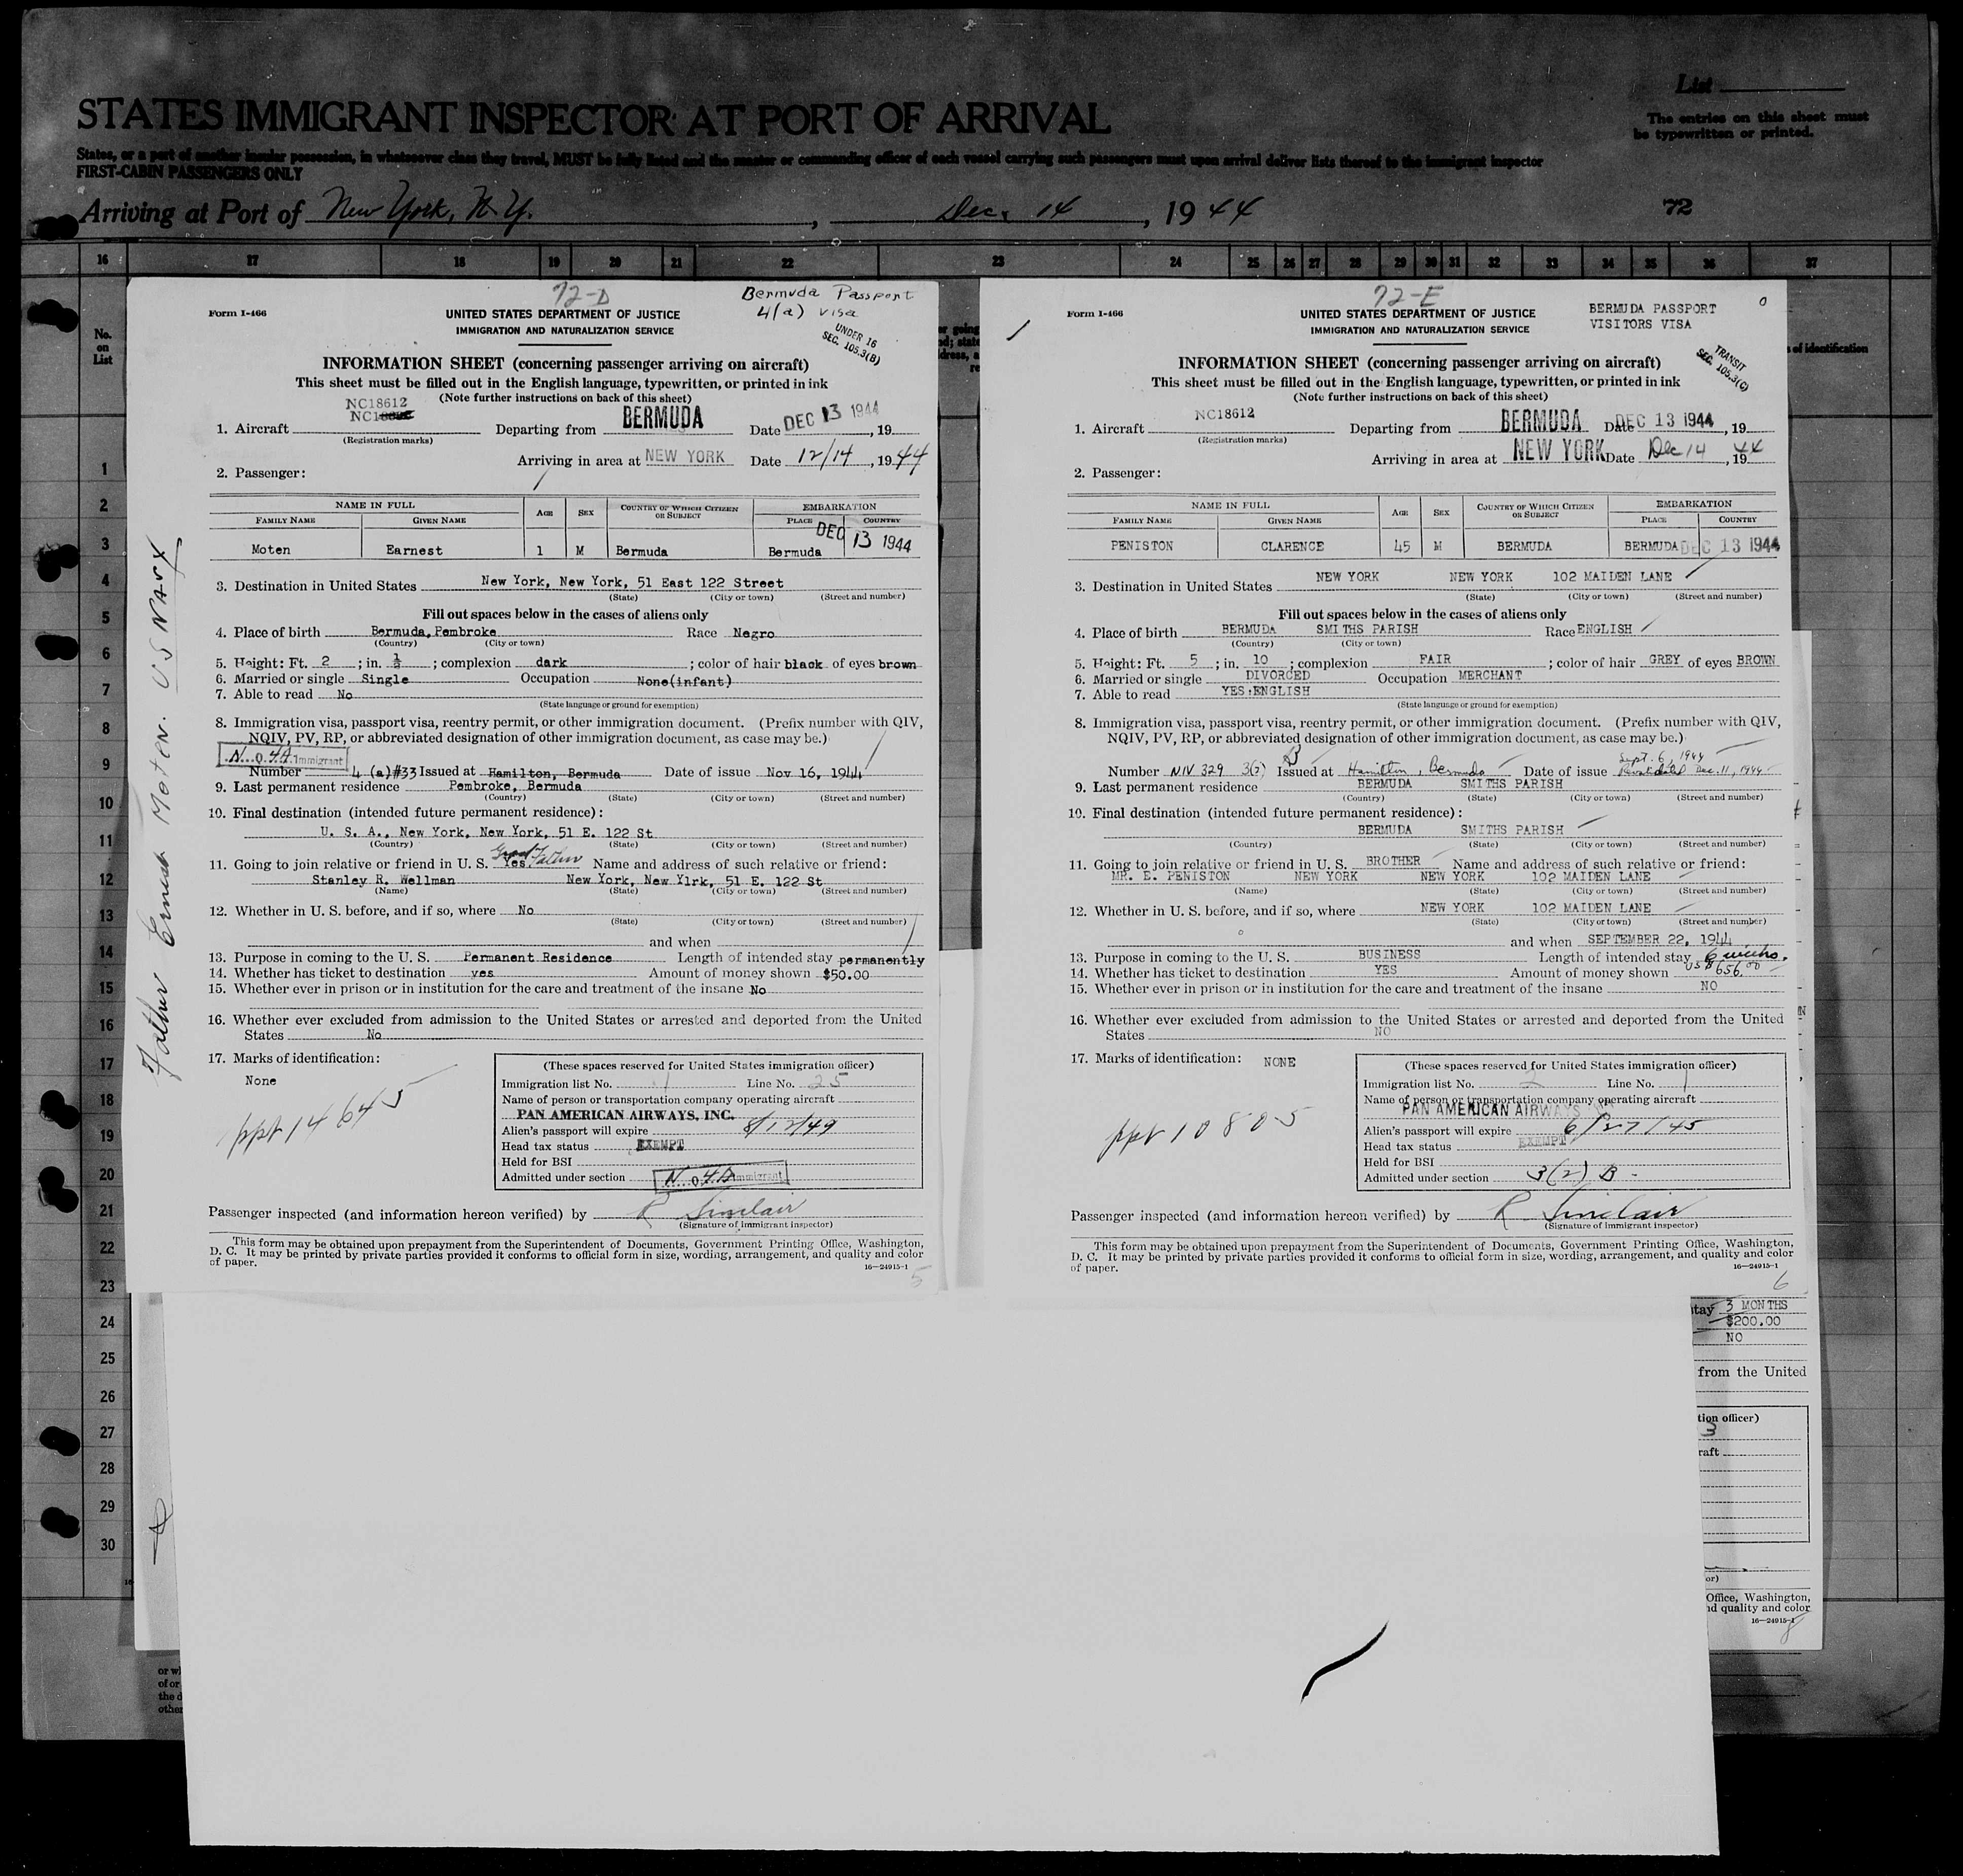 List
STATES IMMIGRANT INSPECTOR AT PORT OF ARRIVAL
The entries on this sheet must
be typewritten or printed.
States, or a part of another insular possession, in whatsoever class they travel, MUST be fully listed and the master or commanding officer of each vessel carrying such passengers must upon arrival deliver lists thereof to the immigrant inspector
FIRST-CABIN PASSENGERS ONLY
Arriving at Port of New York, N.Y. , Dec. 14 , 1944 72
16 17 18 19 20 21 22 23 24 25 26 27 28 29 30 31 32 33 34 35 36 37
No.
on
List
1
2
3
4
5
6
7
8
9
10
11
12
13
14
15
16
17
18
19
20
21
22
23
24
25
26
27
28
29
30
Father Ernest Moten. US NAVY
72-D
Bermuda Passport
4(a) visa
UNDER 16
SEC. 105.3(B)
Form I-466
UNITED STATES DEPARTMENT OF JUSTICE
IMMIGRATION AND NATURALIZATION SERVICE
INFORMATION SHEET (concerning passenger arriving on aircraft)
This sheet must be filled out in the English language, typewritten, or printed in ink
(Note further instructions on back of this sheet)
NC18612
1. Aircraft Departing from BERMUDA Date DEC 13 1944, 19
(Registration marks)
Arriving in area at NEW YORK Date 12/14, 1944
2. Passenger:
NAME IN FULL AGE SEX COUNTRY OF WHICH CITIZEN OR SUBJECT EMBARKATION
FAMILY NAME GIVEN NAME PLACE COUNTRY
Moten Earnest 1 M Bermuda Bermuda DEC 13 1944
3. Destination in United States New York, New York, 51 East 122 Street
(State) (City or town) (Street and number)
Fill out spaces below in the cases of aliens only
4. Place of birth Bermuda, Pembroke Race Negro
(Country) (City or town)
5. Height: Ft. 2 ; in. ½ ; complexion dark ; color of hair black of eyes brown
6. Married or single Single Occupation None(infant)
7. Able to read No
(State language or ground for exemption)
8. Immigration visa, passport visa, reentry permit, or other immigration document. (Prefix number with QIV,
NQIV, PV, RP, or abbreviated designation of other immigration document, as case may be.)
N.o.4A.Immigrant
Number 4 (a)#33 Issued at Hamilton, Bermuda Date of issue Nov 16, 1944
9. Last permanent residence Pembroke, Bermuda
(Country) (State) (City or town) (Street and number)
10. Final destination (intended future permanent residence):
U. S. A., New York, New York, 51 E. 122 St
(Country) (State) (City or town) (Street and number)
11. Going to join relative or friend in U. S. Yes. Grand Father Name and address of such relative or friend:
Stanley R. Wellman New York, New Ylrk, 51 E. 122 St
(Name) (State) (City or town) (Street and number)
12. Whether in U. S. before, and if so, where No
(State) (City or town) (Street and number)
and when
13. Purpose in coming to the U. S. Permanent Residence Length of intended stay permanently
14. Whether has ticket to destination yes Amount of money shown $50.00
15. Whether ever in prison or in institution for the care and treatment of the insane No
16. Whether ever excluded from admission to the United States or arrested and deported from the United
States No
17. Marks of identification:
None
ppt 14645
(These spaces reserved for United States immigration officer)
Immigration list No. 1 Line No. 25
Name of person or transportation company operating aircraft
PAN AMERICAN AIRWAYS, INC.
Alien's passport will expire 8/12/49
Head tax status EXEMPT
Held for BSI
Admitted under section N.o.4A Immigrant
Passenger inspected (and information hereon verified) by R Sinclair
(Signature of immigrant inspector)
This form may be obtained upon prepayment from the Superintendent of Documents, Government Printing Office, Washington,
D. C. It may be printed by private parties provided it conforms to official form in size, wording, arrangement, and quality and color
of paper.
16—24915-1
5
72-E
BERMUDA PASSPORT
VISITORS VISA
TRANSIT
SEC. 105.3(C)
Form I-466
UNITED STATES DEPARTMENT OF JUSTICE
IMMIGRATION AND NATURALIZATION SERVICE
INFORMATION SHEET (concerning passenger arriving on aircraft)
This sheet must be filled out in the English language, typewritten, or printed in ink
(Note further instructions on back of this sheet)
NC18612
1. Aircraft Departing from BERMUDA Date DEC 13 1944, 19
(Registration marks)
Arriving in area at NEW YORK Date Dec 14, 1944
2. Passenger:
NAME IN FULL AGE SEX COUNTRY OF WHICH CITIZEN OR SUBJECT EMBARKATION
FAMILY NAME GIVEN NAME PLACE COUNTRY
PENISTON CLARENCE 45 M BERMUDA BERMUDA DEC 13 1944
3. Destination in United States NEW YORK NEW YORK 102 MAIDEN LANE
(State) (City or town) (Street and number)
Fill out spaces below in the cases of aliens only
4. Place of birth BERMUDA SMITHS PARISH Race ENGLISH
(Country) (City or town)
5. Height: Ft. 5 ; in. 10 ; complexion FAIR ; color of hair GREY of eyes BROWN
6. Married or single DIVORCED Occupation MERCHANT
7. Able to read YES.ENGLISH
(State language or ground for exemption)
8. Immigration visa, passport visa, reentry permit, or other immigration document. (Prefix number with QIV,
NQIV, PV, RP, or abbreviated designation of other immigration document, as case may be.)
Sept. 6, 1944
Number NIV 329 3(2) B Issued at Hamilton, Bermuda Date of issue Revalidated Dec. 11, 1944
9. Last permanent residence BERMUDA SMITHS PARISH
(Country) (State) (City or town) (Street and number)
10. Final destination (intended future permanent residence):
BERMUDA SMITHS PARISH
(Country) (State) (City or town) (Street and number)
11. Going to join relative or friend in U. S. BROTHER Name and address of such relative or friend:
MR. E. PENISTON NEW YORK NEW YORK 102 MAIDEN LANE
(Name) (State) (City or town) (Street and number)
12. Whether in U. S. before, and if so, where NEW YORK 102 MAIDEN LANE
(State) (City or town) (Street and number)
and when SEPTEMBER 22, 1944
13. Purpose in coming to the U. S. BUSINESS Length of intended stay 6 weeks.
14. Whether has ticket to destination YES Amount of money shown US $656.00
15. Whether ever in prison or in institution for the care and treatment of the insane NO
16. Whether ever excluded from admission to the United States or arrested and deported from the United
States NO
17. Marks of identification: NONE
ppt 10805
(These spaces reserved for United States immigration officer)
Immigration list No. 2 Line No. 1
Name of person or transportation company operating aircraft
PAN AMERICAN AIRWAYS
Alien's passport will expire 6/27/45
Head tax status EXEMPT
Held for BSI
Admitted under section 3(2) B -
Passenger inspected (and information hereon verified) by R. Sinclair
(Signature of immigrant inspector)
This form may be obtained upon prepayment from the Superintendent of Documents, Government Printing Office, Washington,
D. C. It may be printed by private parties provided it conforms to official form in size, wording, arrangement, and quality and color
of paper.
16—24915-1
6
of identification
tay 3 MONTHS
$200.00
NO
from the United
tion officer)
3
raft
or)
Office, Washington,
nd quality and color
16—24915-1
8
or wh
of or
the d
other